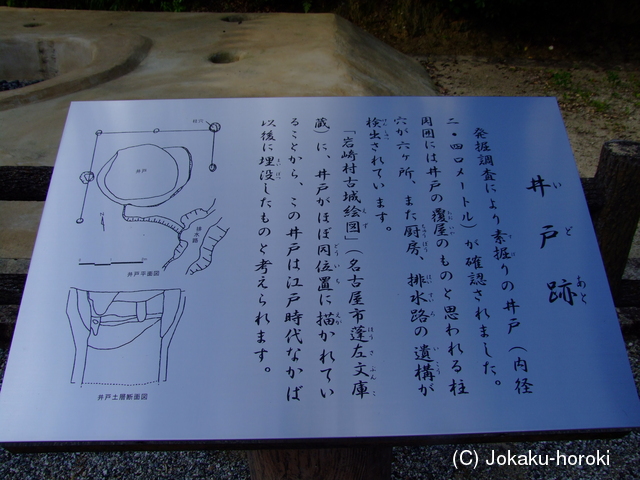 井戸跡
いどあと
発掘調査により素掘りの井戸（内径
二・四〇メートル）が確認されました。
周囲には井戸の覆屋のものと思われる柱
穴が六ヶ所、また厨房、排水路の遺構が
検出されています。
「岩崎村古城絵図」（名古屋市蓬左文庫
蔵）に、井戸がほぼ同位置に描かれてい
ることから、この井戸は江戸時代なかば
以後に埋没したものと考えられます。
柱穴
井戸
排水路
井戸平面図
井戸土層断面図
(C) Jokaku-horoki